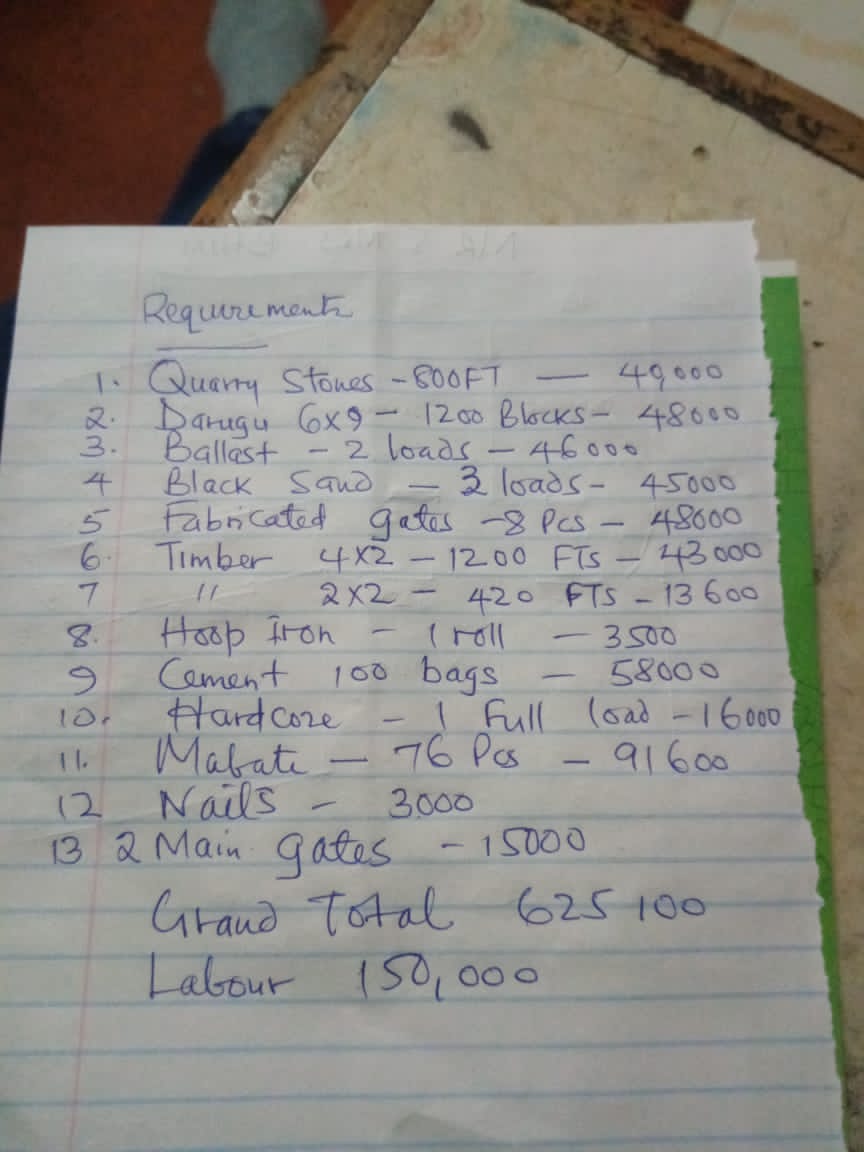 Requirements
1. Quarry Stones - 800FT — 49,000
2. Darugu 6x9 - 1200 Blocks - 48000
3. Ballast - 2 loads - 46000
4 Black Sand - 3 loads - 45000
5 Fabricated gates - 8 Pcs - 48000
6. Timber 4x2 - 1200 FTs - 43000
7 " 2x2 - 420 FTs - 13600
8. Hoop Iron - 1 roll - 3500
9 Cement 100 bags - 58000
10. Hardcore - 1 Full load - 16000
11. Mabati - 76 Pcs - 91600
12 Nails - 3000
13 2 Main gates - 15000
Grand Total 625 100
Labour 150,000